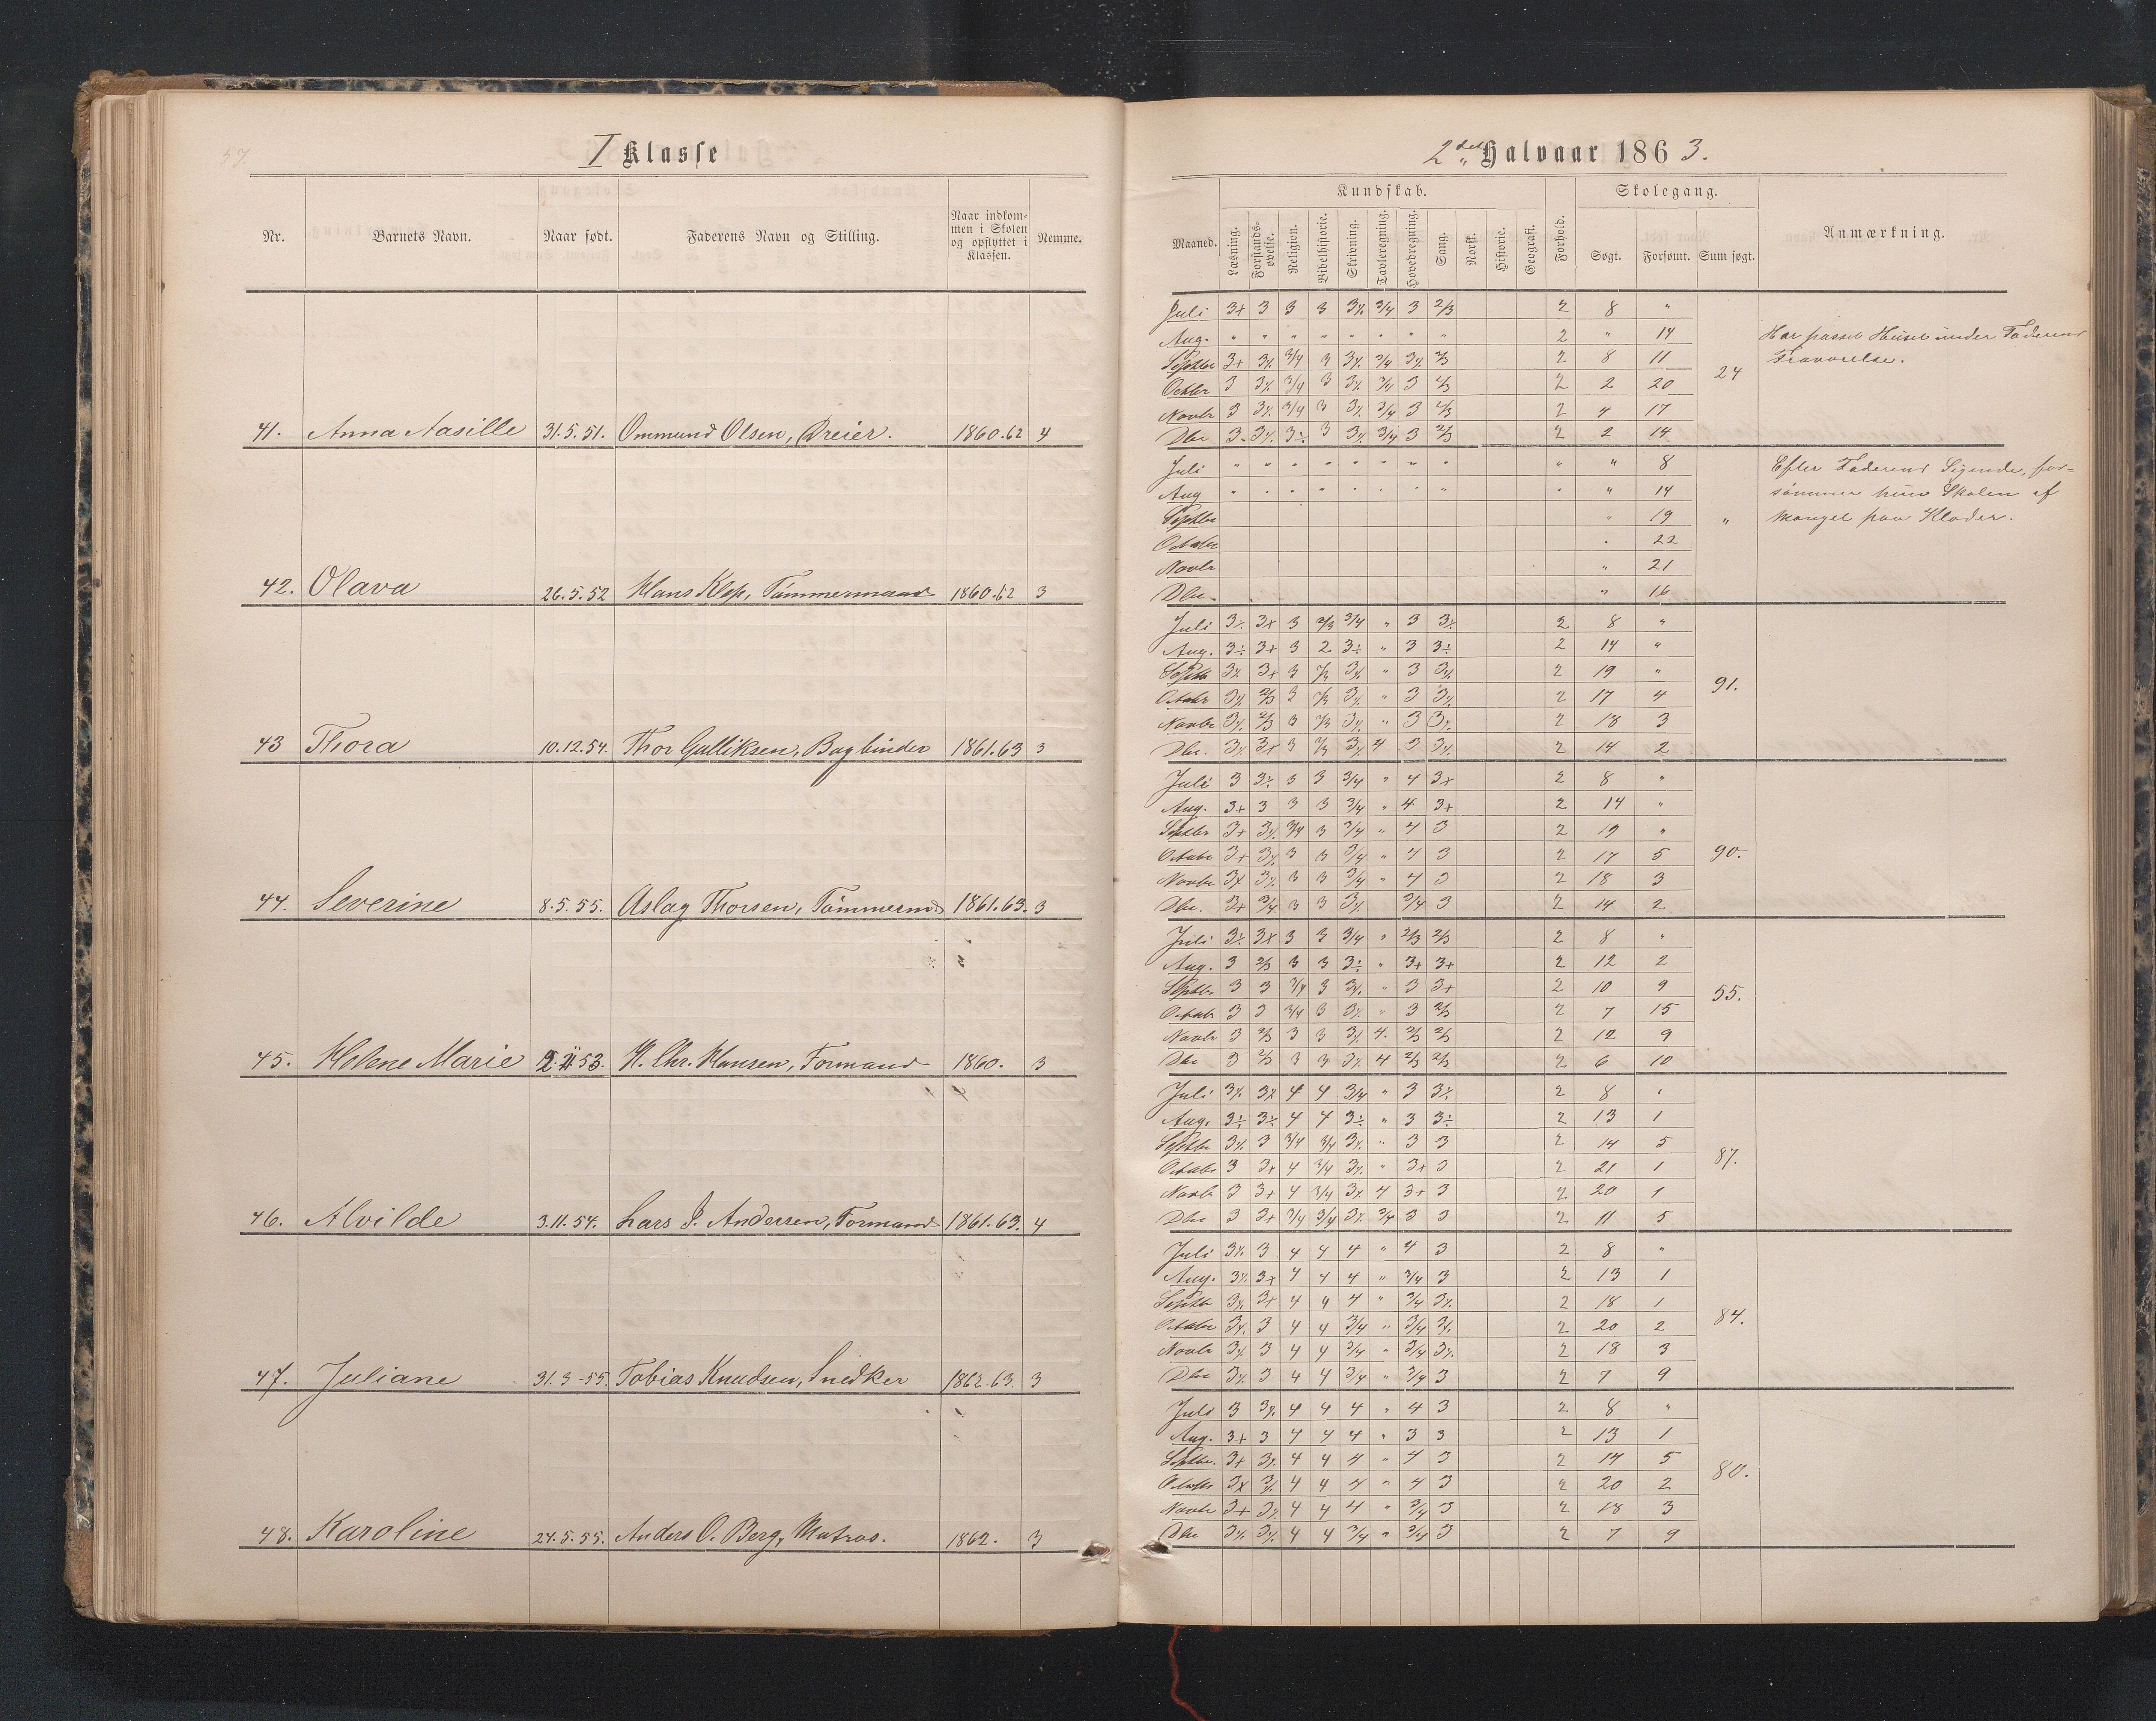 57.
I Klasse
Nr. Barnets Navn. Naar født. Faderens Navn og Stilling. Naar indkommen i Skolen og opflyttet i Klassen. Nemme.
41. Anna Aasille 31.5.51. Ommund Olsen, Dreier. 1860.62 4
42. Olava 26.5.52 Hans Klep, Tømmermand 1860.62 3
43 Thora 10.12.54. Thor Gulliksen, Bogbinder 1861.63 3
44. Severine 8.5.55. Aslag Thorsen, Tømmermd 1861.63. 3
45. Helene Marie 53. H. Chr. Hansen, Formand 1860. 3
46. Alvilde 3.11.54. Lars J. Andersen, Formand 1861.63. 4
47. Juliane 31.3-55. Tobias Knudsen, Snedker 1862.63. 3
48. Karoline 24.5.55. Anders O. Berg, Matros. 1862. 3
2det Halvaar 1863.
Kundskab. Skolegang.
Maaned. Læsning. Forstands-øvelse. Religion. Bibelhistorie. Skrivning. Tavleregning. Hovedregning. Sang. Norsk. Historie. Geografi. Forhold. Søgt. Forsømt. Sum søgt. Anmærkning.
Juli 3+ 3 3 3 3½ 3/4 3 2/3 2 8 "
Aug. " " " " " " " " 2 " 14 Har passet Huset under Faderens
Septbr 3+ 3½ 3/4 3 3½ 3/4 3½ 2/3 2 8 11 24 Fraværelse.
Octbr 3 3½ 3/4 3 3½ 3/4 3 2/3 2 2 20
Novbr 3 3½ 3/4 3 3½ 3/4 3 2/3 2 4 17
Dbr 3 3½ 3½ 3 3½ 3/4 3 2/3 2 2 14
Juli " " " " " " " " " " 8 Efter Faderens Sigende, for=
Aug " " " " " " " " " " 14 sømmer hun Skolen af
Septbr " 19 " Mangel paa Klæder.
Octobr " 22
Novbr " 21
Dbr. " 16
Juli 3½ 3+ 3 2/3 3/4 " 3 3½ 2 8 "
Aug. 3÷ 3+ 3 2 3÷ " 3 3÷ 2 14 "
Septbr 3½ 3+ 3 2/3 3½ " 3 3½ 2 19 " 91.
Octobr 3½ 2/3 3 2/3 3½ " 3 3½ 2 17 4
Novbr 3½ 2/3 3 2/3 3½ " 3 3½ 2 18 3
Dbr. 3½ 3+ 3 2/3 3½ 4 3 3½ 2 14 2
Juli 3 3½ 3 3 3/4 " 4 3+ 2 8 "
Aug. 3+ 3 3 3 3/4 " 4 3+ 2 14 "
Septbr 3+ 3½ 3/4 3 3/4 " 4 3 2 19 "
Octobr 3+ 3½ 3 3 3/4 " 4 3 2 17 5 90.
Novbr 3+ 3½ 3 3 3/4 " 4 3 2 18 3
Dbr. 3+ 3/4 3 3 3½ 3/4 3 2 14 2
Juli 3½ 3+ 3 3 3/4 " 2/3 2/3 2 8 "
Aug. 3 2/3 3 3 3÷ " 3+ 3+ 2 12 2
Septbr 3 3 3/4 3 3½ " 3 3+ 2 10 9 55.
Octobr 3 3 3/4 3 3½ " 3 2/3 2 7 15
Novbr 3 2/3 3 3 3½ 4. 2/3 2/3 2 12 9
Dbr 3 2/3 3 3 3½ 4 2/3 2/3 2 6 10
Juli 3½ 3+ 4 4 3/4 " 3 3½ 2 8 "
Aug. 3÷ 3÷ 4 4 3÷ " 3 3÷ 2 13 1
Septbr 3½ 3 3/4 3/4 3½ " 3 3 2 14 5
Octobr 3 3+ 4 3/4 3½ " 3+ 3 2 21 1 87.
Novbr 3 3+ 4 3/4 3½ 4 3+ 3 2 20 1
Dbr 3 3+ 3/4 3/4 3½ 3/4 3 3 2 11 5
Juli 3½ 3 4 4 4 " 4 3 2 8 "
Aug. 3½ 3+ 4 4 4 " 3/4 3 2 13 1
Septbr 3½ 3+ 4 4 4 " 3/4 3½ 2 18 1
Octobr 3½ 3 4 4 3/4 " 3/4 3½ 2 20 2 84.
Novbr 3½ 3 4 4 3/4 " 3/4 3½ 2 18 3
Dbr 3½ 3 4 4 3/4 " 3/4 3 2 7 9
Juli 3 3½ 4 4 4 " 4 3 2 8 "
Aug. 3+ 3 4 4 4 " 3 3 2 13 1
Septbr. 3+ 3½ 4 4 4 " 4 3 2 14 5
Octobr 3+ 3½ 4 4 4 " 4 3 2 20 2 80.
Novbr 3+ 3½ 4 4 4 " 3/4 3 2 18 3
Dbr 3½ 3½ 4 4 3/4 " 3/4 3 2 7 9